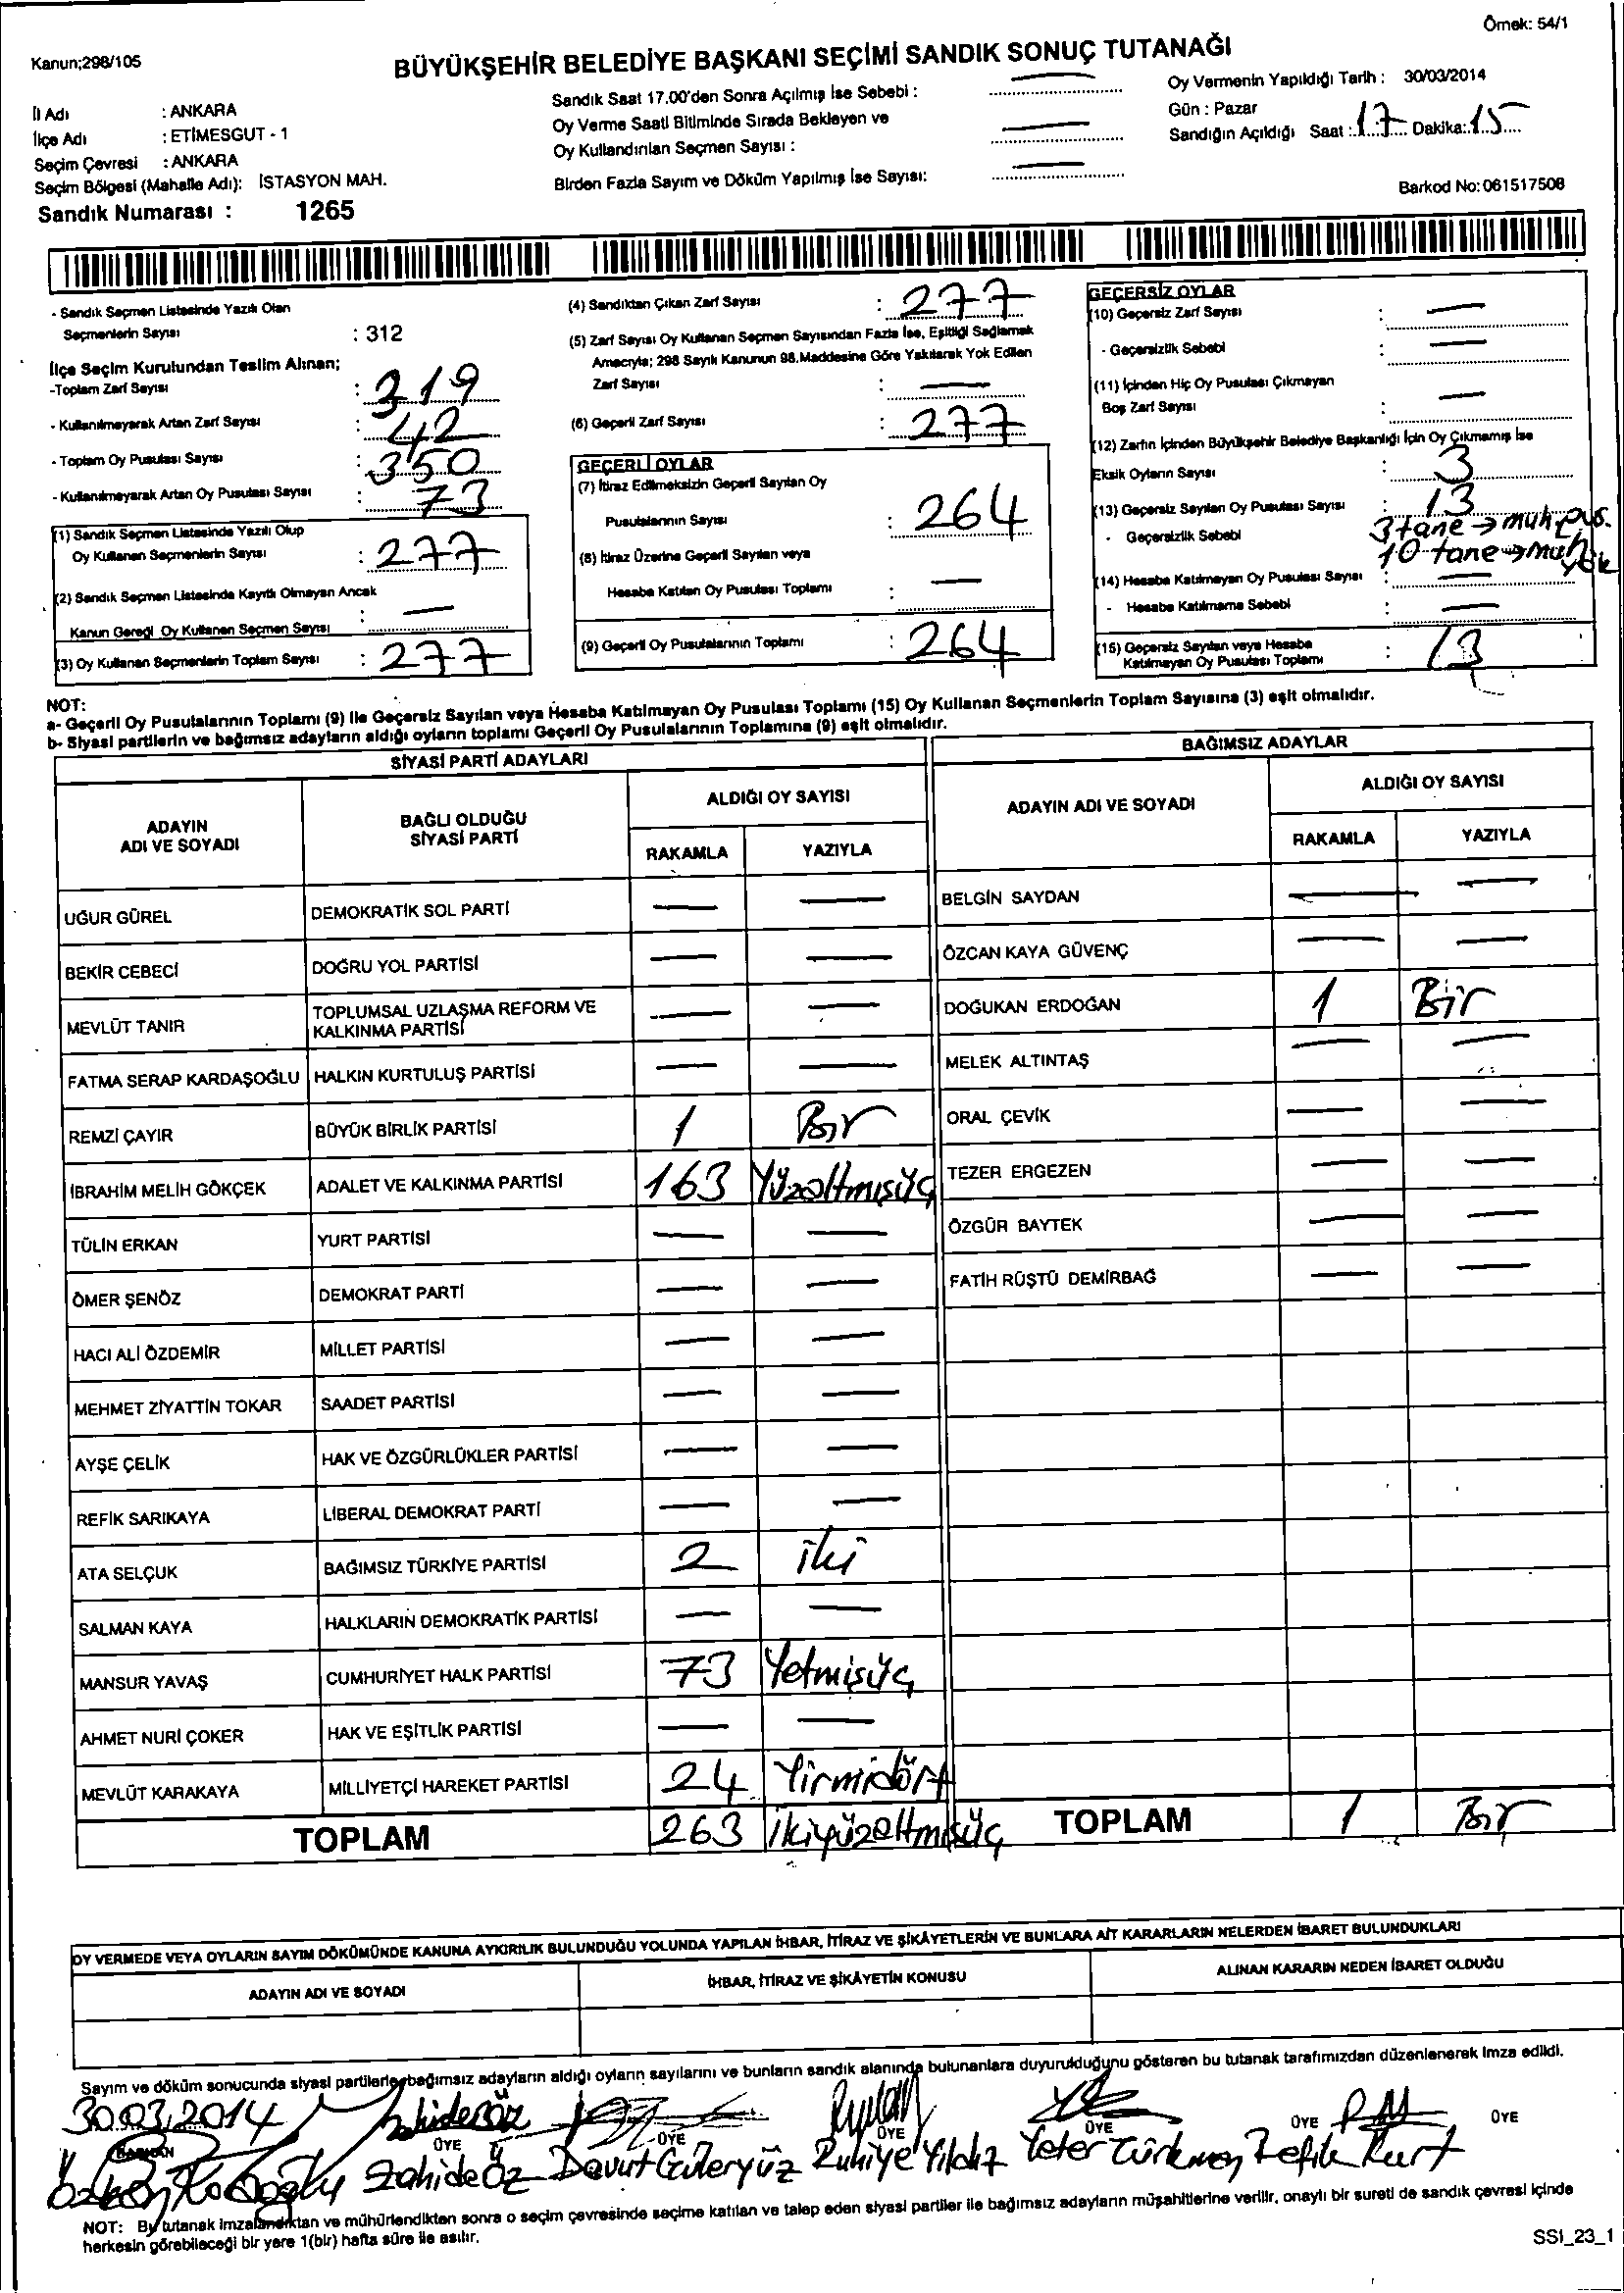 Örnek: 54/1
Kanun;298/105
BÜYÜKŞEHİR BELEDİYE BAŞKANI SEÇİMİ SANDIK SONUÇ TUTANAĞI
İl Adı : ANKARA
İlçe Adı : ETİMESGUT - 1
Seçim Çevresi : ANKARA
Seçim Bölgesi (Mahalle Adı): İSTASYON MAH.
Sandık Numarası : 1265
Sandık Saat 17.00'den Sonra Açılmış İse Sebebi : —
Oy Verme Saati Bitiminde Sırada Bekleyen ve
Oy Kullandırılan Seçmen Sayısı : —
Birden Fazla Sayım ve Döküm Yapılmış İse Sayısı: —
Oy Vermenin Yapıldığı Tarih : 30/03/2014
Gün : Pazar
Sandığın Açıldığı Saat : 17 Dakika: 15
Barkod No: 061517508
- Sandık Seçmen Listesinde Yazılı Olan
Seçmenlerin Sayısı : 312
İlçe Seçim Kurulundan Teslim Alınan;
-Toplam Zarf Sayısı : 319
- Kullanılmayarak Artan Zarf Sayısı : 42
- Toplam Oy Pusulası Sayısı : 350
- Kullanılmayarak Artan Oy Pusulası Sayısı : 73
(1) Sandık Seçmen Listesinde Yazılı Olup
Oy Kullanan Seçmenlerin Sayısı : 277
(2) Sandık Seçmen Listesinde Kayıtlı Olmayan Ancak
Kanun Gereği Oy Kullanan Seçmen Sayısı : —
(3) Oy Kullanan Seçmenlerin Toplam Sayısı : 277
(4) Sandıktan Çıkan Zarf Sayısı : 277
(5) Zarf Sayısı Oy Kullanan Seçmen Sayısından Fazla İse, Eşitliği Sağlamak
Amacıyla; 298 Sayılı Kanunun 98.Maddesine Göre Yakılarak Yok Edilen
Zarf Sayısı : —
(6) Geçerli Zarf Sayısı : 277
GEÇERLİ OYLAR
(7) İtiraz Edilmeksizin Geçerli Sayılan Oy
Pusulalarının Sayısı : 264
(8) İtiraz Üzerine Geçerli Sayılan veya
Hesaba Katılan Oy Pusulası Toplamı : —
(9) Geçerli Oy Pusulalarının Toplamı : 264
GEÇERSİZ OYLAR
(10) Geçersiz Zarf Sayısı : —
- Geçersizlik Sebebi : —
(11) İçinden Hiç Oy Pusulası Çıkmayan
Boş Zarf Sayısı : —
(12) Zarfın İçinden Büyükşehir Belediye Başkanlığı İçin Oy Çıkmamış İse
Eksik Oyların Sayısı : 3
(13) Geçersiz Sayılan Oy Pusulası Sayısı : 13
- Geçersizlik Sebebi 3 tane → muh. pus.
10 tane → muh. yok
(14) Hesaba Katılmayan Oy Pusulası Sayısı : —
- Hesaba Katılmama Sebebi : —
(15) Geçersiz Sayılan veya Hesaba
Katılmayan Oy Pusulası Toplamı : 13
NOT:
a- Geçerli Oy Pusulalarının Toplamı (9) ile Geçersiz Sayılan veya Hesaba Katılmayan Oy Pusulası Toplamı (15) Oy Kullanan Seçmenlerin Toplam Sayısına (3) eşit olmalıdır.
b- Siyasi partilerin ve bağımsız adayların aldığı oyların toplamı Geçerli Oy Pusulalarının Toplamına (9) eşit olmalıdır.
SİYASİ PARTİ ADAYLARI
ADAYIN ADI VE SOYADI BAĞLI OLDUĞU SİYASİ PARTİ ALDIĞI OY SAYISI
RAKAMLA YAZIYLA
UĞUR GÜREL DEMOKRATİK SOL PARTİ — —
BEKİR CEBECİ DOĞRU YOL PARTİSİ — —
MEVLÜT TANIR TOPLUMSAL UZLAŞMA REFORM VE KALKINMA PARTİSİ — —
FATMA SERAP KARDAŞOĞLU HALKIN KURTULUŞ PARTİSİ — —
REMZİ ÇAYIR BÜYÜK BİRLİK PARTİSİ 1 Bir
İBRAHİM MELİH GÖKÇEK ADALET VE KALKINMA PARTİSİ 163 Yüzaltmışüç
TÜLİN ERKAN YURT PARTİSİ — —
ÖMER ŞENÖZ DEMOKRAT PARTİ — —
HACI ALİ ÖZDEMİR MİLLET PARTİSİ — —
MEHMET ZİYATTİN TOKAR SAADET PARTİSİ — —
AYŞE ÇELİK HAK VE ÖZGÜRLÜKLER PARTİSİ — —
REFİK SARIKAYA LİBERAL DEMOKRAT PARTİ — —
ATA SELÇUK BAĞIMSIZ TÜRKİYE PARTİSİ 2 iki
SALMAN KAYA HALKLARIN DEMOKRATİK PARTİSİ — —
MANSUR YAVAŞ CUMHURİYET HALK PARTİSİ 73 Yetmişüç
AHMET NURİ ÇOKER HAK VE EŞİTLİK PARTİSİ — —
MEVLÜT KARAKAYA MİLLİYETÇİ HAREKET PARTİSİ 24 Yirmidört
TOPLAM 263 ikiyüzaltmışüç
BAĞIMSIZ ADAYLAR
ADAYIN ADI VE SOYADI ALDIĞI OY SAYISI
RAKAMLA YAZIYLA
BELGİN SAYDAN — —
ÖZCAN KAYA GÜVENÇ — —
DOĞUKAN ERDOĞAN 1 Bir
MELEK ALTINTAŞ — —
ORAL ÇEVİK — —
TEZER ERGEZEN — —
ÖZGÜR BAYTEK — —
FATİH RÜŞTÜ DEMİRBAĞ — —
TOPLAM 1 Bir
OY VERMEDE VEYA OYLARIN SAYIM DÖKÜMÜNDE KANUNA AYKIRILIK BULUNDUĞU YOLUNDA YAPILAN İHBAR, İTİRAZ VE ŞİKÂYETLERİN VE BUNLARA AİT KARARLARIN NELERDEN İBARET BULUNDUKLARI
ADAYIN ADI VE SOYADI İHBAR, İTİRAZ VE ŞİKÂYETİN KONUSU ALINAN KARARIN NEDEN İBARET OLDUĞU
Sayım ve döküm sonucunda siyasi partilerle bağımsız adayların aldığı oyların sayılarını ve bunların sandık alanında bulunanlara duyurulduğunu gösteren bu tutanak tarafımızdan düzenlenerek imza edildi.
30.03.2014
BAŞKAN ÜYE ÜYE ÜYE ÜYE ÜYE ÜYE
Zahide Öz Davut Güleryüz Ruhiye Yıldız Yeter Türkmen Refik Kurt
NOT: Bu tutanak imzalandıktan ve mühürlendikten sonra o seçim çevresinde seçime katılan ve talep eden siyasi partiler ile bağımsız adayların müşahitlerine verilir, onaylı bir sureti de sandık çevresi içinde
herkesin görebileceği bir yere 1(bir) hafta süre ile asılır.
SSI_23_1